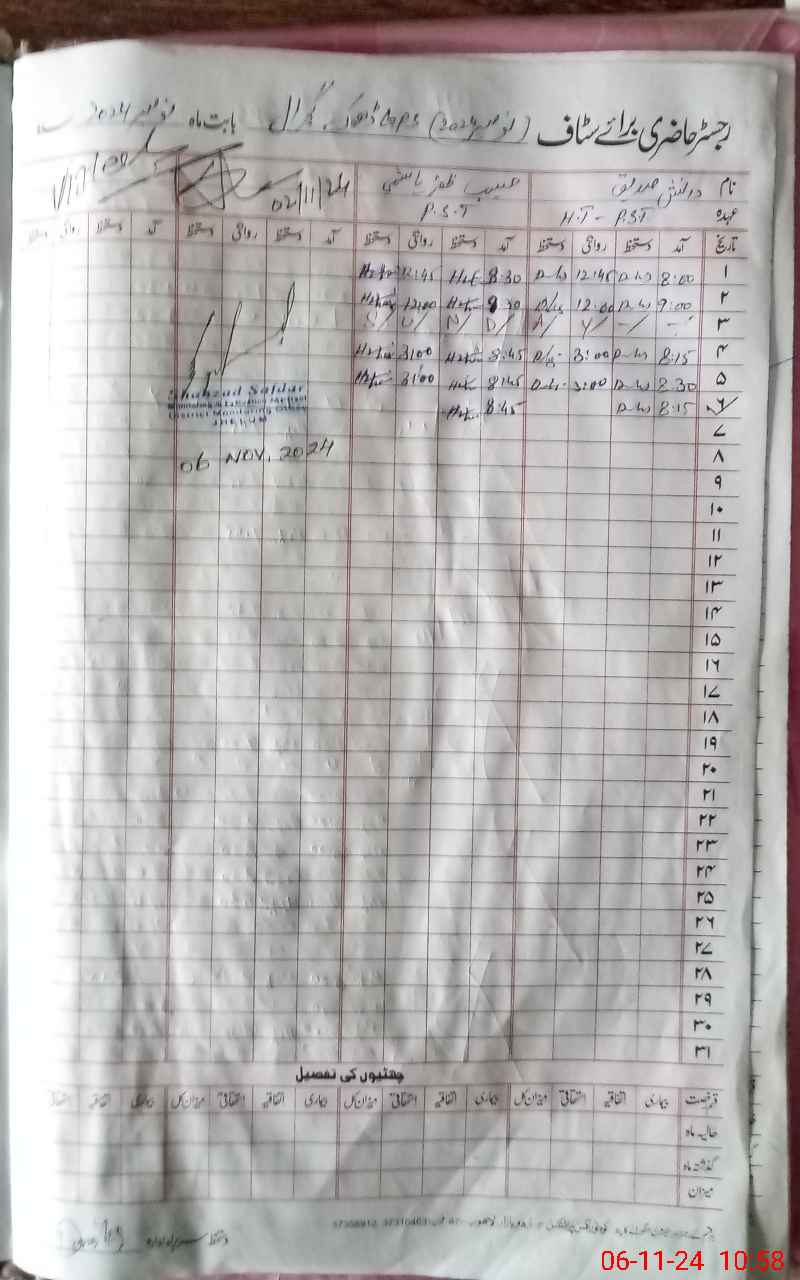 رجسٹر حاضری برائے سٹاف (نومبر 2024) GPS ڈھوک گجرال بابت ماہ نومبر 2024
نام دانش صدیق حبیب ظفر ہاشمی 02/11/24 Visited
عہدہ H.T - P.S.T P.S.T
تاریخ آمد دستخط روانگی دستخط آمد دستخط روانگی دستخط آمد دستخط روانگی دستخط آمد دستخط روانگی دستخط
۱ 8:00 12:45 8:30 12:45
۲ 9:00 12:00 8:30 12:00
۳ S / U / N / D / A / Y / - / -
۴ 8:15 3:00 8:45 3:00
۵ 8:30 3:00 8:45 3:00
Shahzad Safdar
۶ 8:15 8:45
District Monitoring Officer
JHELUM
۷
۸ 06 NOV, 2024
۹
۱۰
۱۱
۱۲
۱۳
۱۴
۱۵
۱۶
۱۷
۱۸
۱۹
۲۰
۲۱
۲۲
۲۳
۲۴
۲۵
۲۶
۲۷
۲۸
۲۹
۳۰
۳۱
چھٹیوں کی تفصیل
قسم رخصت بیماری اتفاقیہ استحقاقی میزان کل بیماری اتفاقیہ استحقاقی میزان کل بیماری اتفاقیہ استحقاقی میزان کل بیماری اتفاقیہ استحقاقی
حالیہ ماہ
گذشتہ ماہ
میزان
دستخط سربراہ ادارہ
06-11-24 10:58